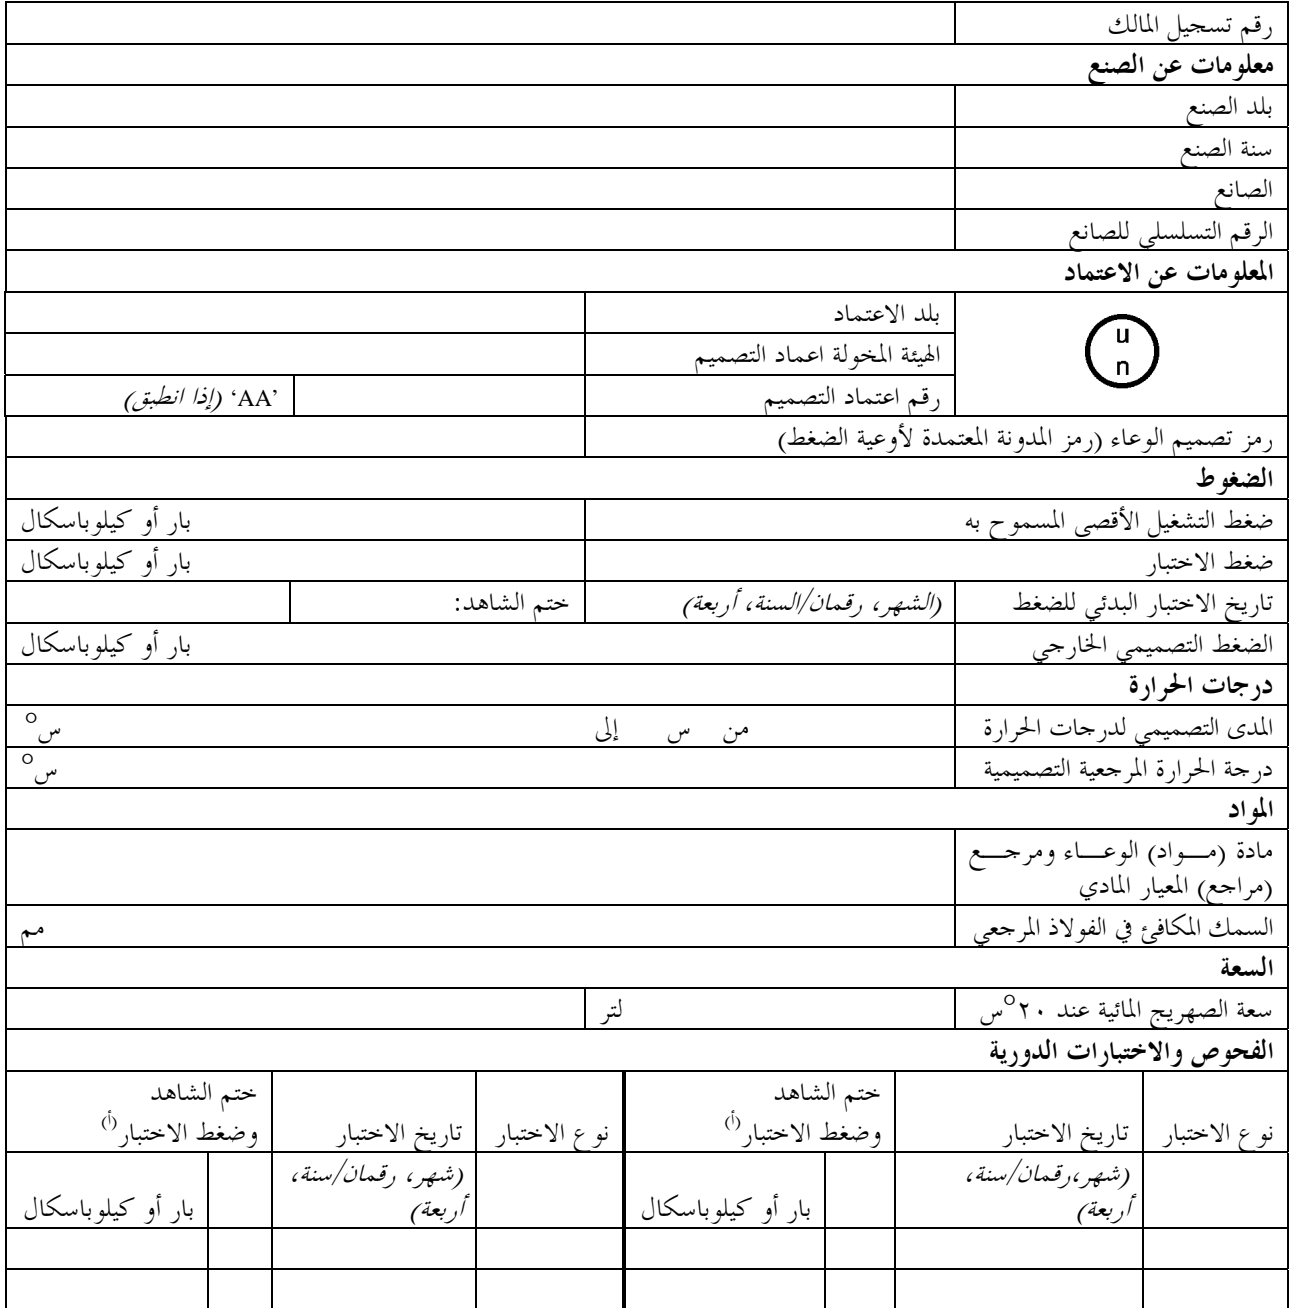 رقم تسجيل المالك
معلومات عن الصنع
بلد الصنع
سنة الصنع
الصانع
الرقم التسلسلي للصانع
المعلومات عن الاعتماد
u
n
بلد الاعتماد
الهيئة المخولة اعماد التصميم
رقم اعتماد التصميم 'AA' (إذا انطبق)
رمز تصميم الوعاء (رمز المدونة المعتمدة لأوعية الضغط)
الضغوط
ضغط التشغيل الأقصى المسموح به بار أو كيلوباسكال
ضغط الاختبار بار أو كيلوباسكال
تاريخ الاختبار البدئي للضغط (الشهر، رقمان/السنة، أربعة) ختم الشاهد:
الضغط التصميمي الخارجي بار أو كيلوباسكال
درجات الحرارة
المدى التصميمي لدرجات الحرارة من س إلى س°
درجة الحرارة المرجعية التصميمية س°
المواد
مادة (مـــواد) الوعـــاء ومرجـــع
(مراجع) المعيار المادي
السمك المكافئ في الفولاذ المرجعي مم
السعة
سعة الصهريج المائية عند ٢٠°س لتر
الفحوص والاختبارات الدورية
ختم الشاهد ختم الشاهد
نوع الاختبار تاريخ الاختبار وضغط الاختبار(أ) نوع الاختبار تاريخ الاختبار وضغط الاختبار(أ)
(شهر،رقمان/سنة، (شهر، رقمان/سنة،
أربعة) بار أو كيلوباسكال أربعة) بار أو كيلوباسكال